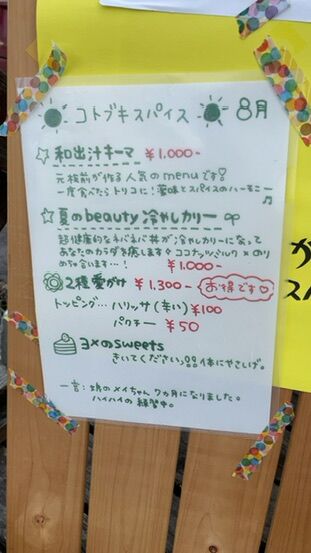 コトブキスパイス 8月
☆和出汁キーマ ¥1.000-
元板前が作る人気のmenuです!
一度食べたらトリコに!薬味とスパイスのハーモニー♪
☆夏のbeauty冷やしカリー
超健康的なネバネバ丼が冷やしカリーになって
あなたのカラダを癒します♡ココナッツミルク×のり
めちゃ合います…! ¥1.000-
2種愛がけ ¥1.300- お得です♡
トッピング… ハリッサ(辛い) ¥100
パクチー ¥50
ヨメのsweets
きいてください♪!! 体にやさしげ。
一言:娘のメイちゃん7ヵ月になりました。
ハイハイの練習中。
か
ス